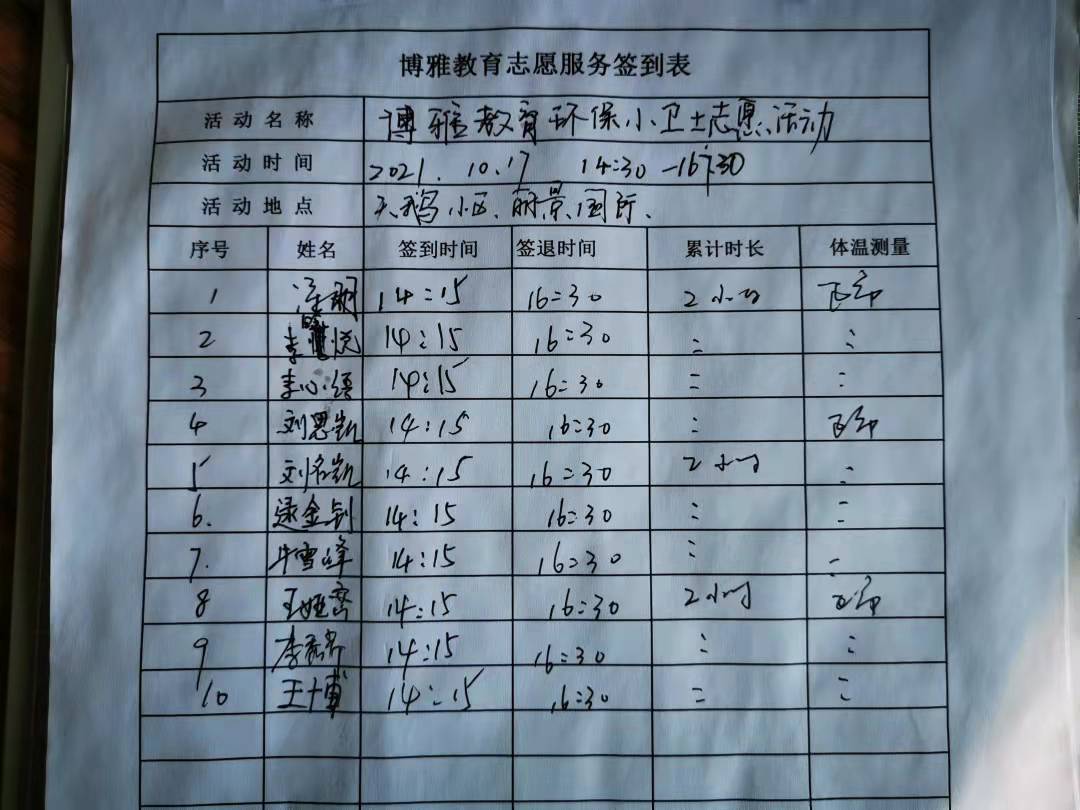 博雅教育志愿服务签到表
活动名称 博雅教育环保小卫士志愿活动
活动时间 2021.10.17 14:30-16:30
活动地点 天鹅小区、丽景国际、
序号 姓名 签到时间 签退时间 累计时长 体温测量
1 14:15 16:30 2小时 正常
2 李 悦 14:15 16:30 : :
3 李心 14:15 16:30 : :
4 刘思凯 14:15 16:30 : 正常
5 刘名凯 14:15 16:30 2小时 :
6. 逯金钊 14:15 16:30 : :
7. 牛雪峰 14:15 16:30 : :
8 王 14:15 16:30 2小时 正常
9 李 14:15 16:30 : :
10 王博 14:15 16:30 : :